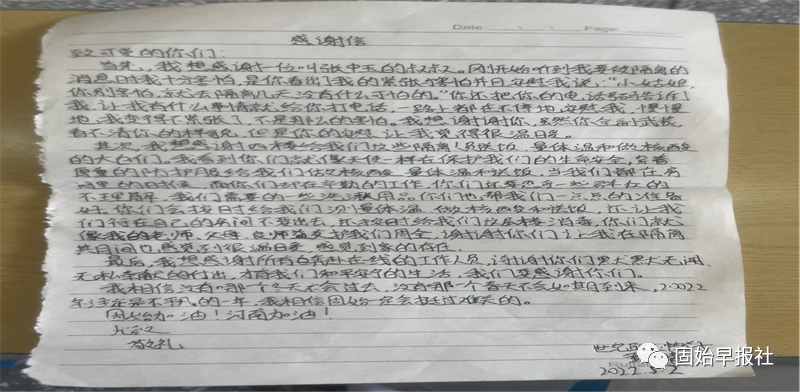 Date Page
感谢信
致可爱的你们：
首先，我想感谢一位叫张中玉的叔叔。刚开始听到我要被隔离的
消息时我十分害怕，是你看出了我的紧张害怕并且安慰我说：“小姑娘，
你别害怕，就去隔离几天没有什么可怕的。”你还把你的电话号码告诉了
我，让我有什么事情就给你打电话，一路上都在不停地安慰我，慢慢
地我变得不紧张了，不是那么的害怕。我想谢谢你，虽然你全副武装，
看不清你的样貌，但是你的安慰让我觉得很温暖。
其次，我想感谢四楼给我们这些隔离人员送饭、量体温和做核酸
的大白们。我看到你们就像天使一样在保护我们的生命安全，穿着
厚重的防护服给我们做核酸、量体温和送饭，当我们都在房
间里的时候，而你们却在辛勤的工作，你们还要忍受一些群众的
不理解，我们需要的一些洗漱用品，你们也帮我们一点点的准备
好，你们会按时给我们测量体温、做核酸和送饭，还让我
们待在自己的房间不要出去，还按时给我们这层楼消毒，你们就
像我的老师、父母、良师益友护我们周全，谢谢你们，让我在隔离
期间也感觉到很温暖，感觉到家的存在。
最后，我想感谢所有白奔赴在一线的工作人员，谢谢你们默默无闻、
无私奉献的付出，才有我们和平安宁的生活，我们要感谢你们。
我相信没有哪个冬天不会过去，没有哪个春天不会如期到来，2022
年注定是不平凡的一年，我相信固始一定会挺过难关的。
固始加油！河南加油！
此致
敬礼
2022.5.2
固始早报社